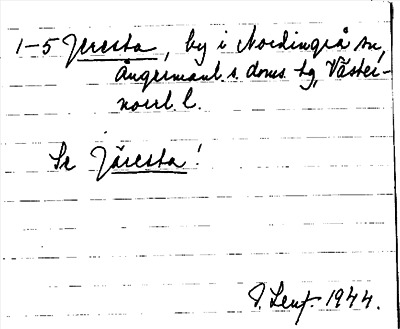 1-5 Jeresta, by i Nordingrå sn,
Ångermanl. s. doms. tg, Väster-
norrl. l.
Se Järesta!
1944.